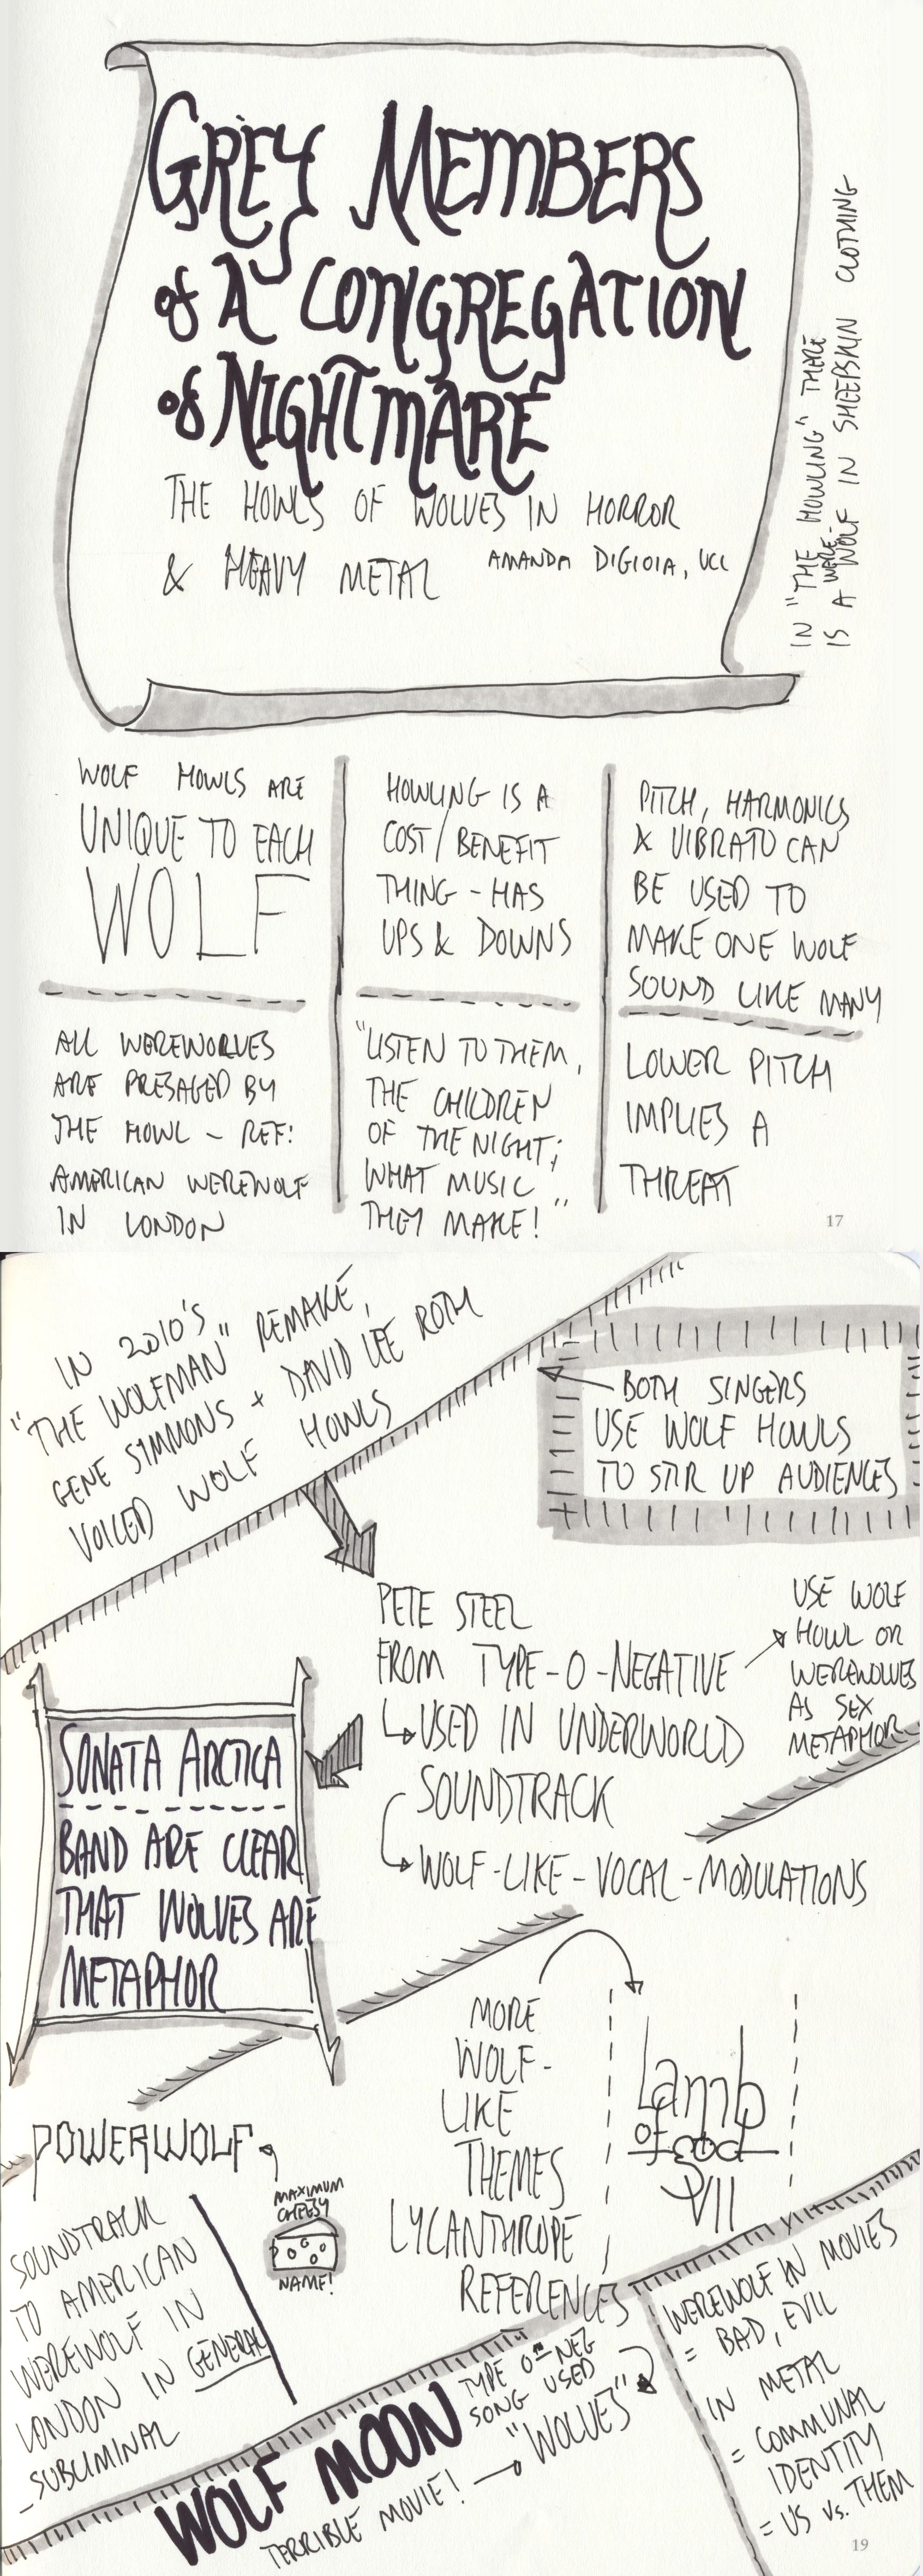 GREY MEMBERS
of A CONGREGATION
of NIGHTMARE
THE HOWLS OF WOLVES IN HORROR
& HEAVY METAL AMANDA DIGIOIA, UCL
IN "THE HOWLING" THERE
IS A WOLF IN SHEEPSKIN CLOTHING
WERE-
WOLF HOWLS ARE
UNIQUE TO EACH
WOLF
HOWLING IS A
COST/BENEFIT
THING - HAS
UPS & DOWNS
PITCH, HARMONICS
& VIBRATO CAN
BE USED TO
MAKE ONE WOLF
SOUND LIKE MANY
ALL WEREWOLVES
ARE PRESAGED BY
THE HOWL - REF:
AMERICAN WEREWOLF
IN LONDON
"LISTEN TO THEM,
THE CHILDREN
OF THE NIGHT;
WHAT MUSIC
THEY MAKE!"
LOWER PITCH
IMPLIES A
THREAT
17
IN 2010'S
"THE WOLFMAN" REMAKE,
GENE SIMMONS + DAVID LEE ROTH
VOICED WOLF HOWLS
BOTH SINGERS
USE WOLF HOWLS
TO STIR UP AUDIENCES
PETE STEEL
FROM TYPE-O-NEGATIVE
USED IN UNDERWORLD
SOUNDTRACK
WOLF-LIKE-VOCAL-MODULATIONS
USE WOLF
HOWL OR
WEREWOLVES
AS SEX
METAPHOR
SONATA ARCTICA
BAND ARE CLEAR
THAT WOLVES ARE
METAPHOR
MORE
WOLF-
LIKE
THEMES
LYCANTHROPE
REFERENCES
Lamb
OF God
VII
POWERWOLF
MAXIMUM
CHEESY
NAME!
SOUNDTRACK
TO AMERICAN
WEREWOLF IN
LONDON IN GENERAL
- SUBLIMINAL
WOLF MOON
TERRIBLE MOVIE!
TYPE O NEG
SONG USED
"WOLVES"
WEREWOLF IN MOVIES
= BAD, EVIL
IN METAL
= COMMUNAL
IDENTITY
= US vs. THEM
19